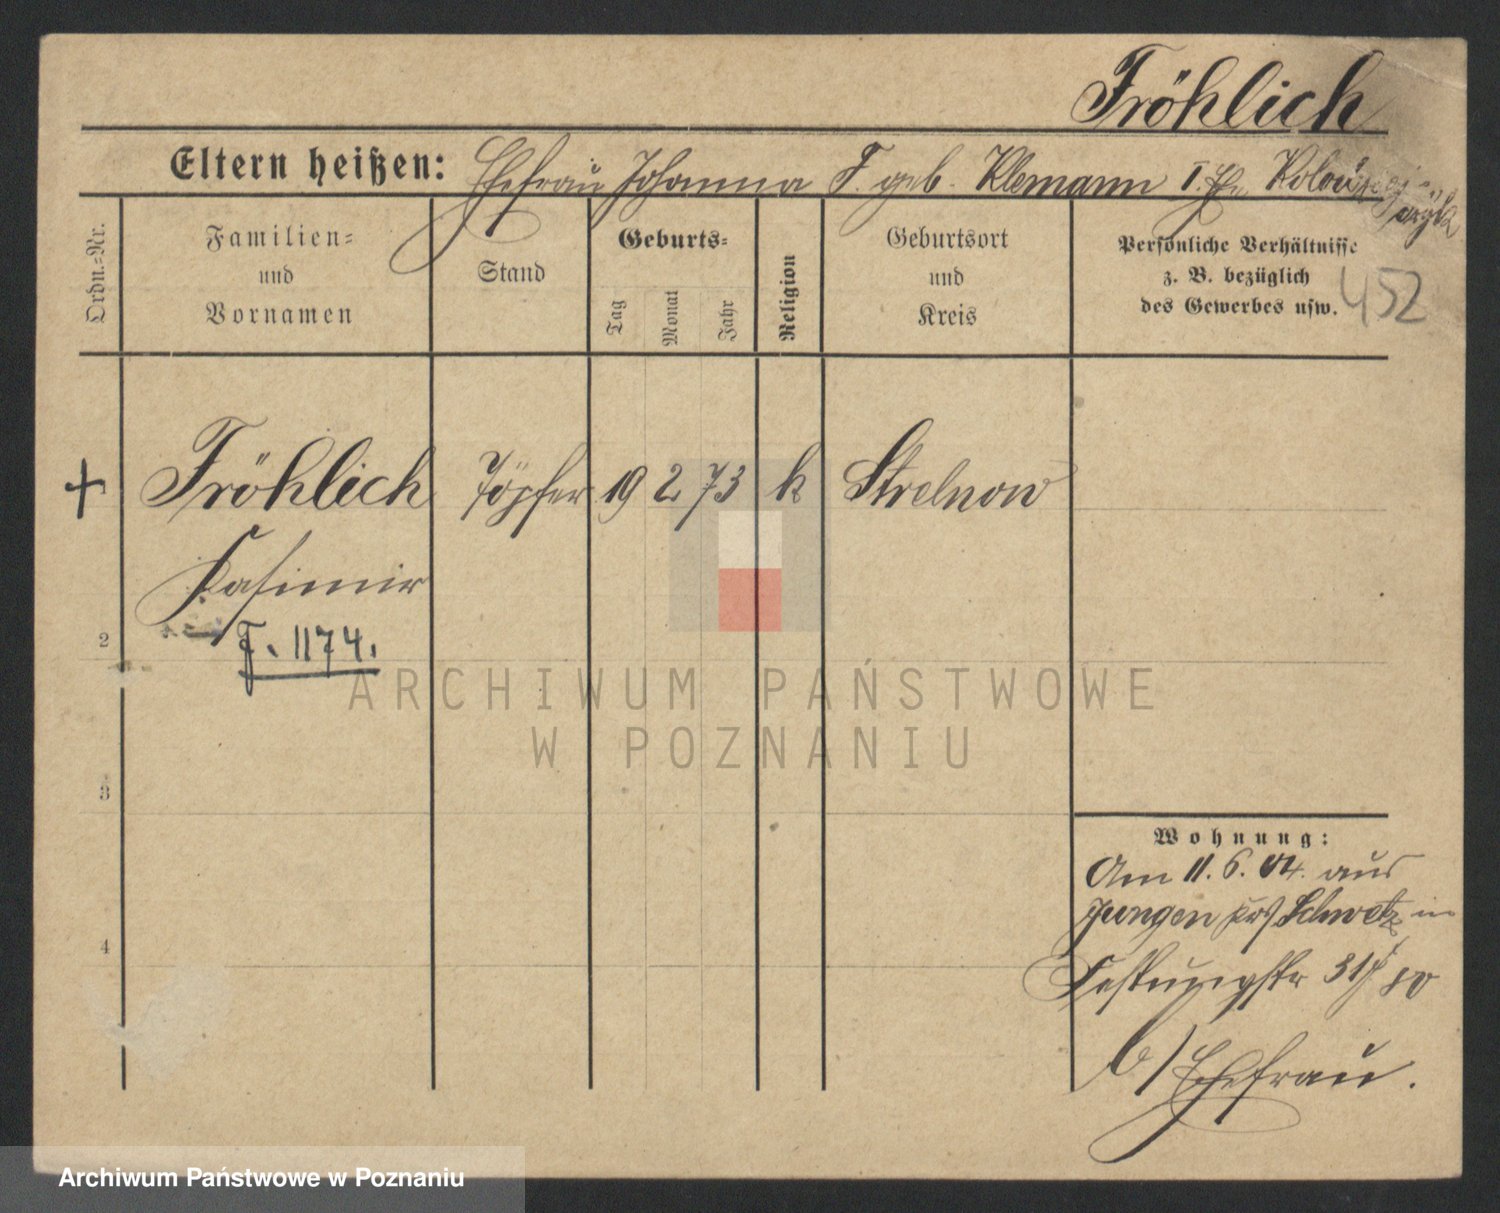 Fröhlich
Eltern heißen: Ehefrau Johanna F. geb. Klemann I. Ehe
452
Ordn.-Nr.
Familien-
und
Vornamen
Stand
Geburts-
Tag
Monat
Jahr
Religion
Geburtsort
und
Kreis
Persönliche Verhältnisse
z. B. bezüglich
des Gewerbes usw.
+ Fröhlich Töpfer 19 2 73 k Strelnow
Kasimir
F. 1174.
2
3
4
Wohnung:
Am 11. 6. 04. aus
Jungen Krs Schwetz in
Festungstr 31
b/ Ehefrau.
ARCHIWUM PAŃSTWOWE
W POZNANIU
Archiwum Państwowe w Poznaniu